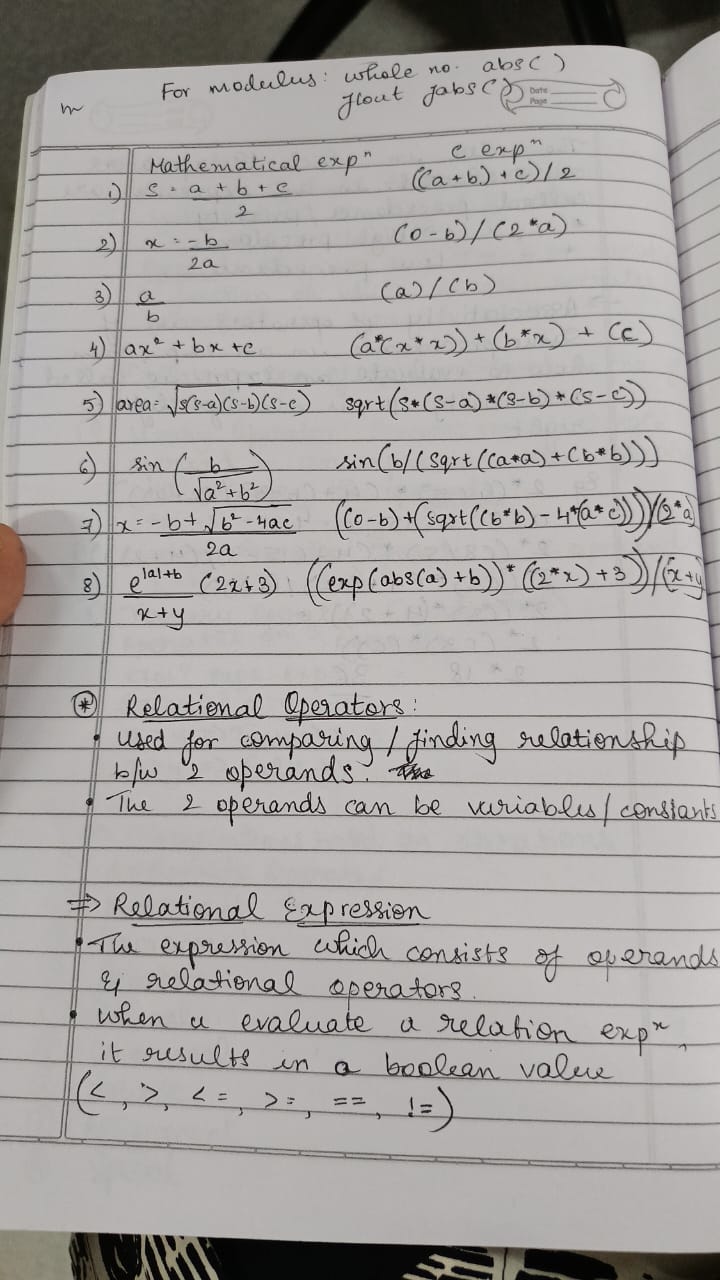 For modulus: whole no. abs()
float fabs()
Date
Page
m
Mathematical expⁿ C expⁿ
1) S = a + b + c / 2 ((a+b)+c)/2
2) x = -b / 2a (0-b)/(2*a)
3) a / b (a)/(b)
4) ax² + bx + c (a*(x*x))+(b*x) + (c)
5) area= √s(s-a)(s-b)(s-c) sqrt(s*(s-a)*(s-b)*(s-c))
6) sin (b / √a²+b²) sin(b/(sqrt((a*a)+(b*b)))
7) x = -b+√b²-4ac / 2a ((0-b)+(sqrt((b*b)-4*(a*c))))/(2*a)
8) e^|a|+b / x+y (2x+3) ((exp(abs(a)+b))*((2*x)+3))/(x+y
* Relational Operators:
• Used for comparing / finding relationship
b/w 2 operands.
• The 2 operands can be variables/constants
⇒ Relational Expression
• The expression which consists of operands
& relational operators.
• when u evaluate a relation expⁿ,
it results in a boolean value
(<, >, <=, >=, ==, !=)